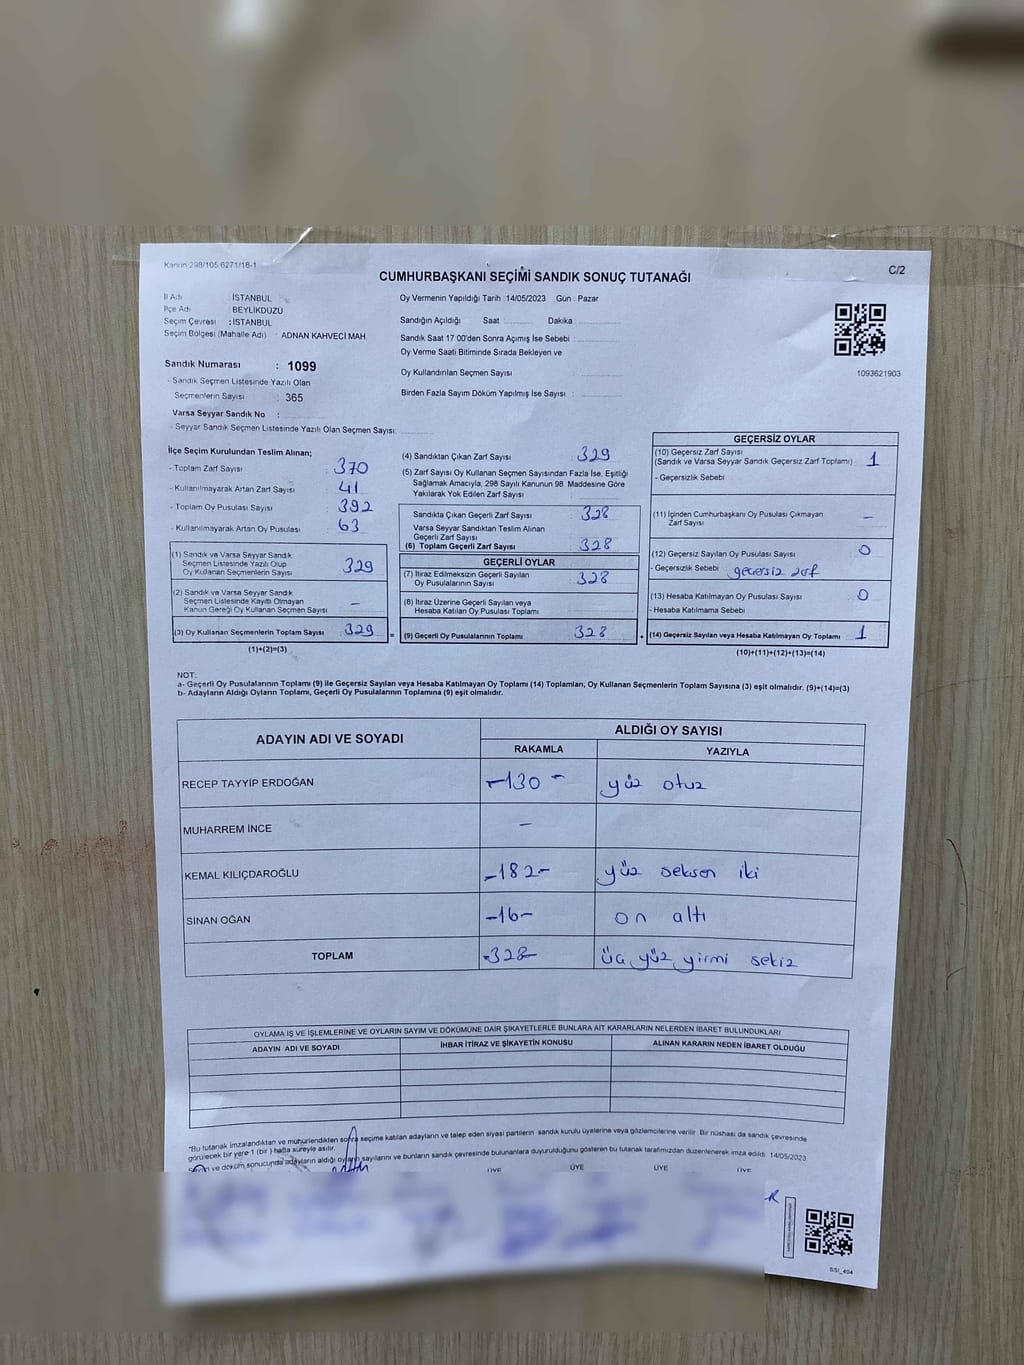 Kanun 298/105,6271/18-1
C/2
CUMHURBAŞKANI SEÇİMİ SANDIK SONUÇ TUTANAĞI
İl Adı : İSTANBUL
İlçe Adı : BEYLİKDÜZÜ
Seçim Çevresi : İSTANBUL
Seçim Bölgesi (Mahalle Adı) : ADNAN KAHVECİ MAH.
Oy Vermenin Yapıldığı Tarih : 14/05/2023 Gün : Pazar
Sandığın Açıldığı Saat Dakika :
Sandık Saat 17:00'den Sonra Açımış İse Sebebi :
Oy Verme Saati Bitiminde Sırada Bekleyen ve
Oy Kullandırılan Seçmen Sayısı :
Birden Fazla Sayım Döküm Yapılmış İse Sayısı :
1093621903
Sandık Numarası : 1099
- Sandık Seçmen Listesinde Yazılı Olan
Seçmenlerin Sayısı : 365
Varsa Seyyar Sandık No :
- Seyyar Sandık Seçmen Listesinde Yazılı Olan Seçmen Sayısı:
İlçe Seçim Kurulundan Teslim Alınan;
- Toplam Zarf Sayısı : 370
- Kullanılmayarak Artan Zarf Sayısı : 41
- Toplam Oy Pusulası Sayısı : 392
- Kullanılmayarak Artan Oy Pusulası : 63
(1) Sandık ve Varsa Seyyar Sandık
Seçmen Listesinde Yazılı Olup
Oy Kullanan Seçmenlerin Sayısı 329
(2) Sandık ve Varsa Seyyar Sandık
Seçmen Listesinde Kayıtlı Olmayan
Kanun Gereği Oy Kullanan Seçmen Sayısı –
(3) Oy Kullanan Seçmenlerin Toplam Sayısı 329
(1)+(2)=(3)
(4) Sandıktan Çıkan Zarf Sayısı : 329
(5) Zarf Sayısı Oy Kullanan Seçmen Sayısından Fazla İse, Eşitliği
Sağlamak Amacıyla, 298 Sayılı Kanunun 98. Maddesine Göre
Yakılarak Yok Edilen Zarf Sayısı :
Sandıkta Çıkan Geçerli Zarf Sayısı : 328
Varsa Seyyar Sandıktan Teslim Alınan
Geçerli Zarf Sayısı :
(6) Toplam Geçerli Zarf Sayısı : 328
GEÇERLİ OYLAR
(7) İtiraz Edilmeksizin Geçerli Sayılan
Oy Pusulalarının Sayısı : 328
(8) İtiraz Üzerine Geçerli Sayılan veya
Hesaba Katılan Oy Pusulası Toplamı :
= (9) Geçerli Oy Pusulalarının Toplamı : 328
GEÇERSİZ OYLAR
(10) Geçersiz Zarf Sayısı
(Sandık ve Varsa Seyyar Sandık Geçersiz Zarf Toplamı) : 1
- Geçersizlik Sebebi
(11) İçinden Cumhurbaşkanı Oy Pusulası Çıkmayan
Zarf Sayısı –
(12) Geçersiz Sayılan Oy Pusulası Sayısı 0
- Geçersizlik Sebebi geçersiz zarf
(13) Hesaba Katılmayan Oy Pusulası Sayısı : 0
- Hesaba Katılmama Sebebi
+ (14) Geçersiz Sayılan veya Hesaba Katılmayan Oy Toplamı 1
(10)+(11)+(12)+(13)=(14)
NOT:
a- Geçerli Oy Pusulalarının Toplamı (9) ile Geçersiz Sayılan veya Hesaba Katılmayan Oy Toplamı (14) Toplamları, Oy Kullanan Seçmenlerin Toplam Sayısına (3) eşit olmalıdır. (9)+(14)=(3)
b- Adayların Aldığı Oyların Toplamı, Geçerli Oy Pusulalarının Toplamına (9) eşit olmalıdır.
ADAYIN ADI VE SOYADI
ALDIĞI OY SAYISI
RAKAMLA YAZIYLA
RECEP TAYYİP ERDOĞAN -130- yüz otuz
MUHARREM İNCE –
KEMAL KILIÇDAROĞLU -182- yüz seksen iki
SİNAN OĞAN -16- on altı
TOPLAM -328- üç yüz yirmi sekiz
OYLAMA İŞ VE İŞLEMLERİNE VE OYLARIN SAYIM VE DÖKÜMÜNE DAİR ŞİKAYETLERLE BUNLARA AİT KARARLARIN NELERDEN İBARET BULUNDUKLARI
ADAYIN ADI VE SOYADI İHBAR İTİRAZ VE ŞİKAYETİN KONUSU ALINAN KARARIN NEDEN İBARET OLDUĞU
"Bu tutanak imzalandıktan ve mühürlendikten sonra seçime katılan adayların ve talep eden siyasi partilerin sandık kurulu üyelerine veya gözlemcilerine verilir. Bir nüshası da sandık çevresinde
görülecek bir yere 1 (bir) hafta süreyle asılır.
Sayım ve döküm sonucunda adayların aldığı oyların sayılarını ve bunların sandık çevresinde bulunanlara duyurulduğunu gösteren bu tutanak tarafımızdan düzenlenerek imza edildi. 14/05/2023
ÜYE ÜYE ÜYE ÜYE
SSİ_404